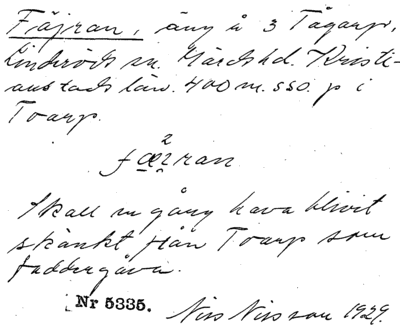 Fäjran, äng å 3 Tågarp,
Linderöds sn. Gärds hd. Kristi-
anstads län. 400 m. SSO. p i
Toarp.
2
fæʒran
Skall en gång hava blivit
skänkt från Toarp som
faddergåva.
Nr 5335.
Nils Nilsson 1929.